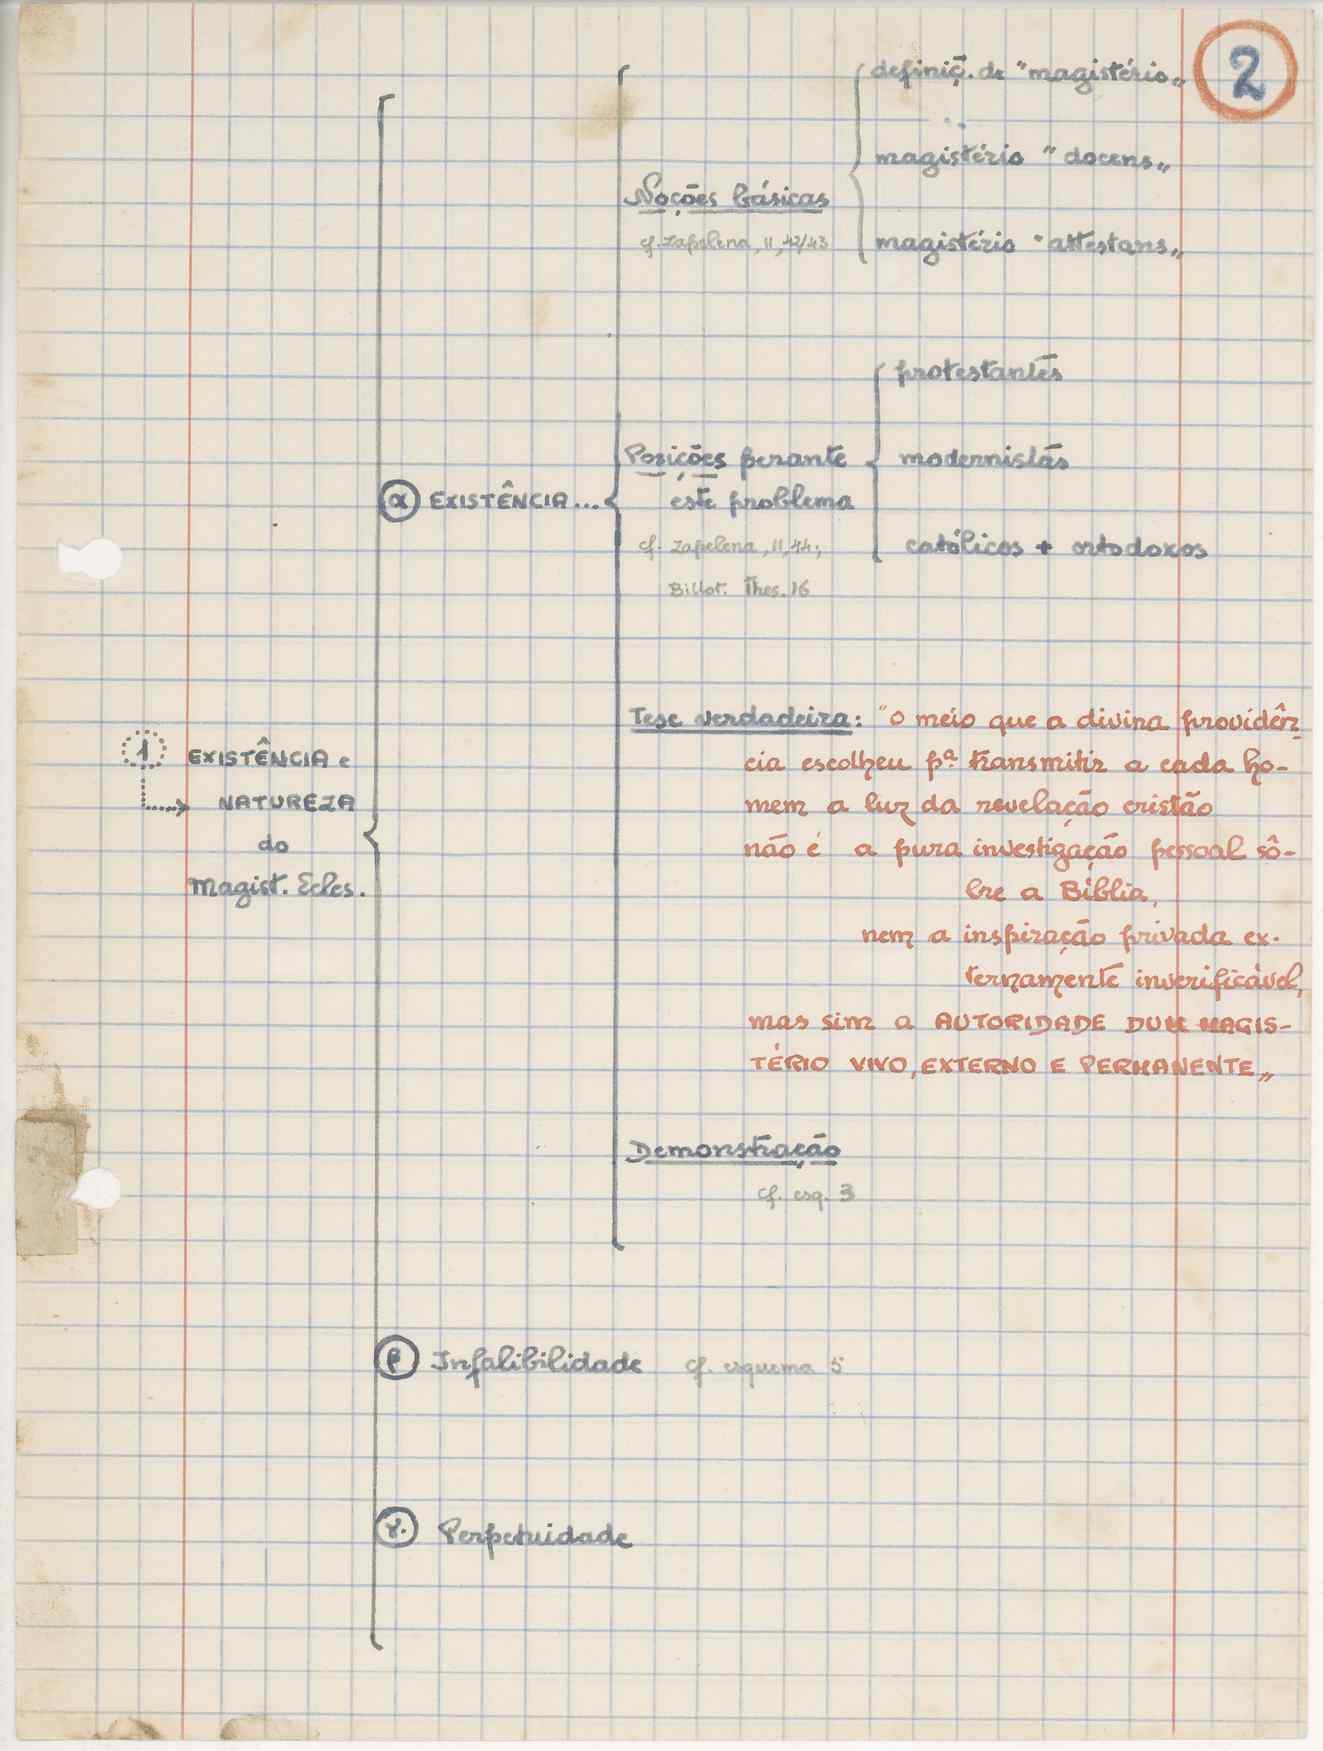 2
definiç̃. de "magistério„
magistério "docens„
Noções básicas
cf. Zapelena, II, 42/43
magistério "attestans„
protestantes
Posições perante
modernistas
α EXISTÊNCIA...
este problema
cf. Zapelena, II, 44;
católicos + ortodoxos
Billot. Thes. 16
Tese verdadeira: "o meio que a divina providên-
1 EXISTÊNCIA e
cia escolheu pª. transmitir a cada ho-
NATUREZA
mem a luz da revelação cristão
do
não é a pura investigação pessoal sô-
Magist. Ecles.
bre a Bíblia,
nem a inspiração privada ex-
ternamente inverificável,
mas sim a AUTORIDADE DUM MAGIS-
TÉRIO VIVO, EXTERNO E PERMANENTE„
Demonstração
cf. esq. 3
β Infalibilidade cf. esquema 5
γ. Perpetuidade